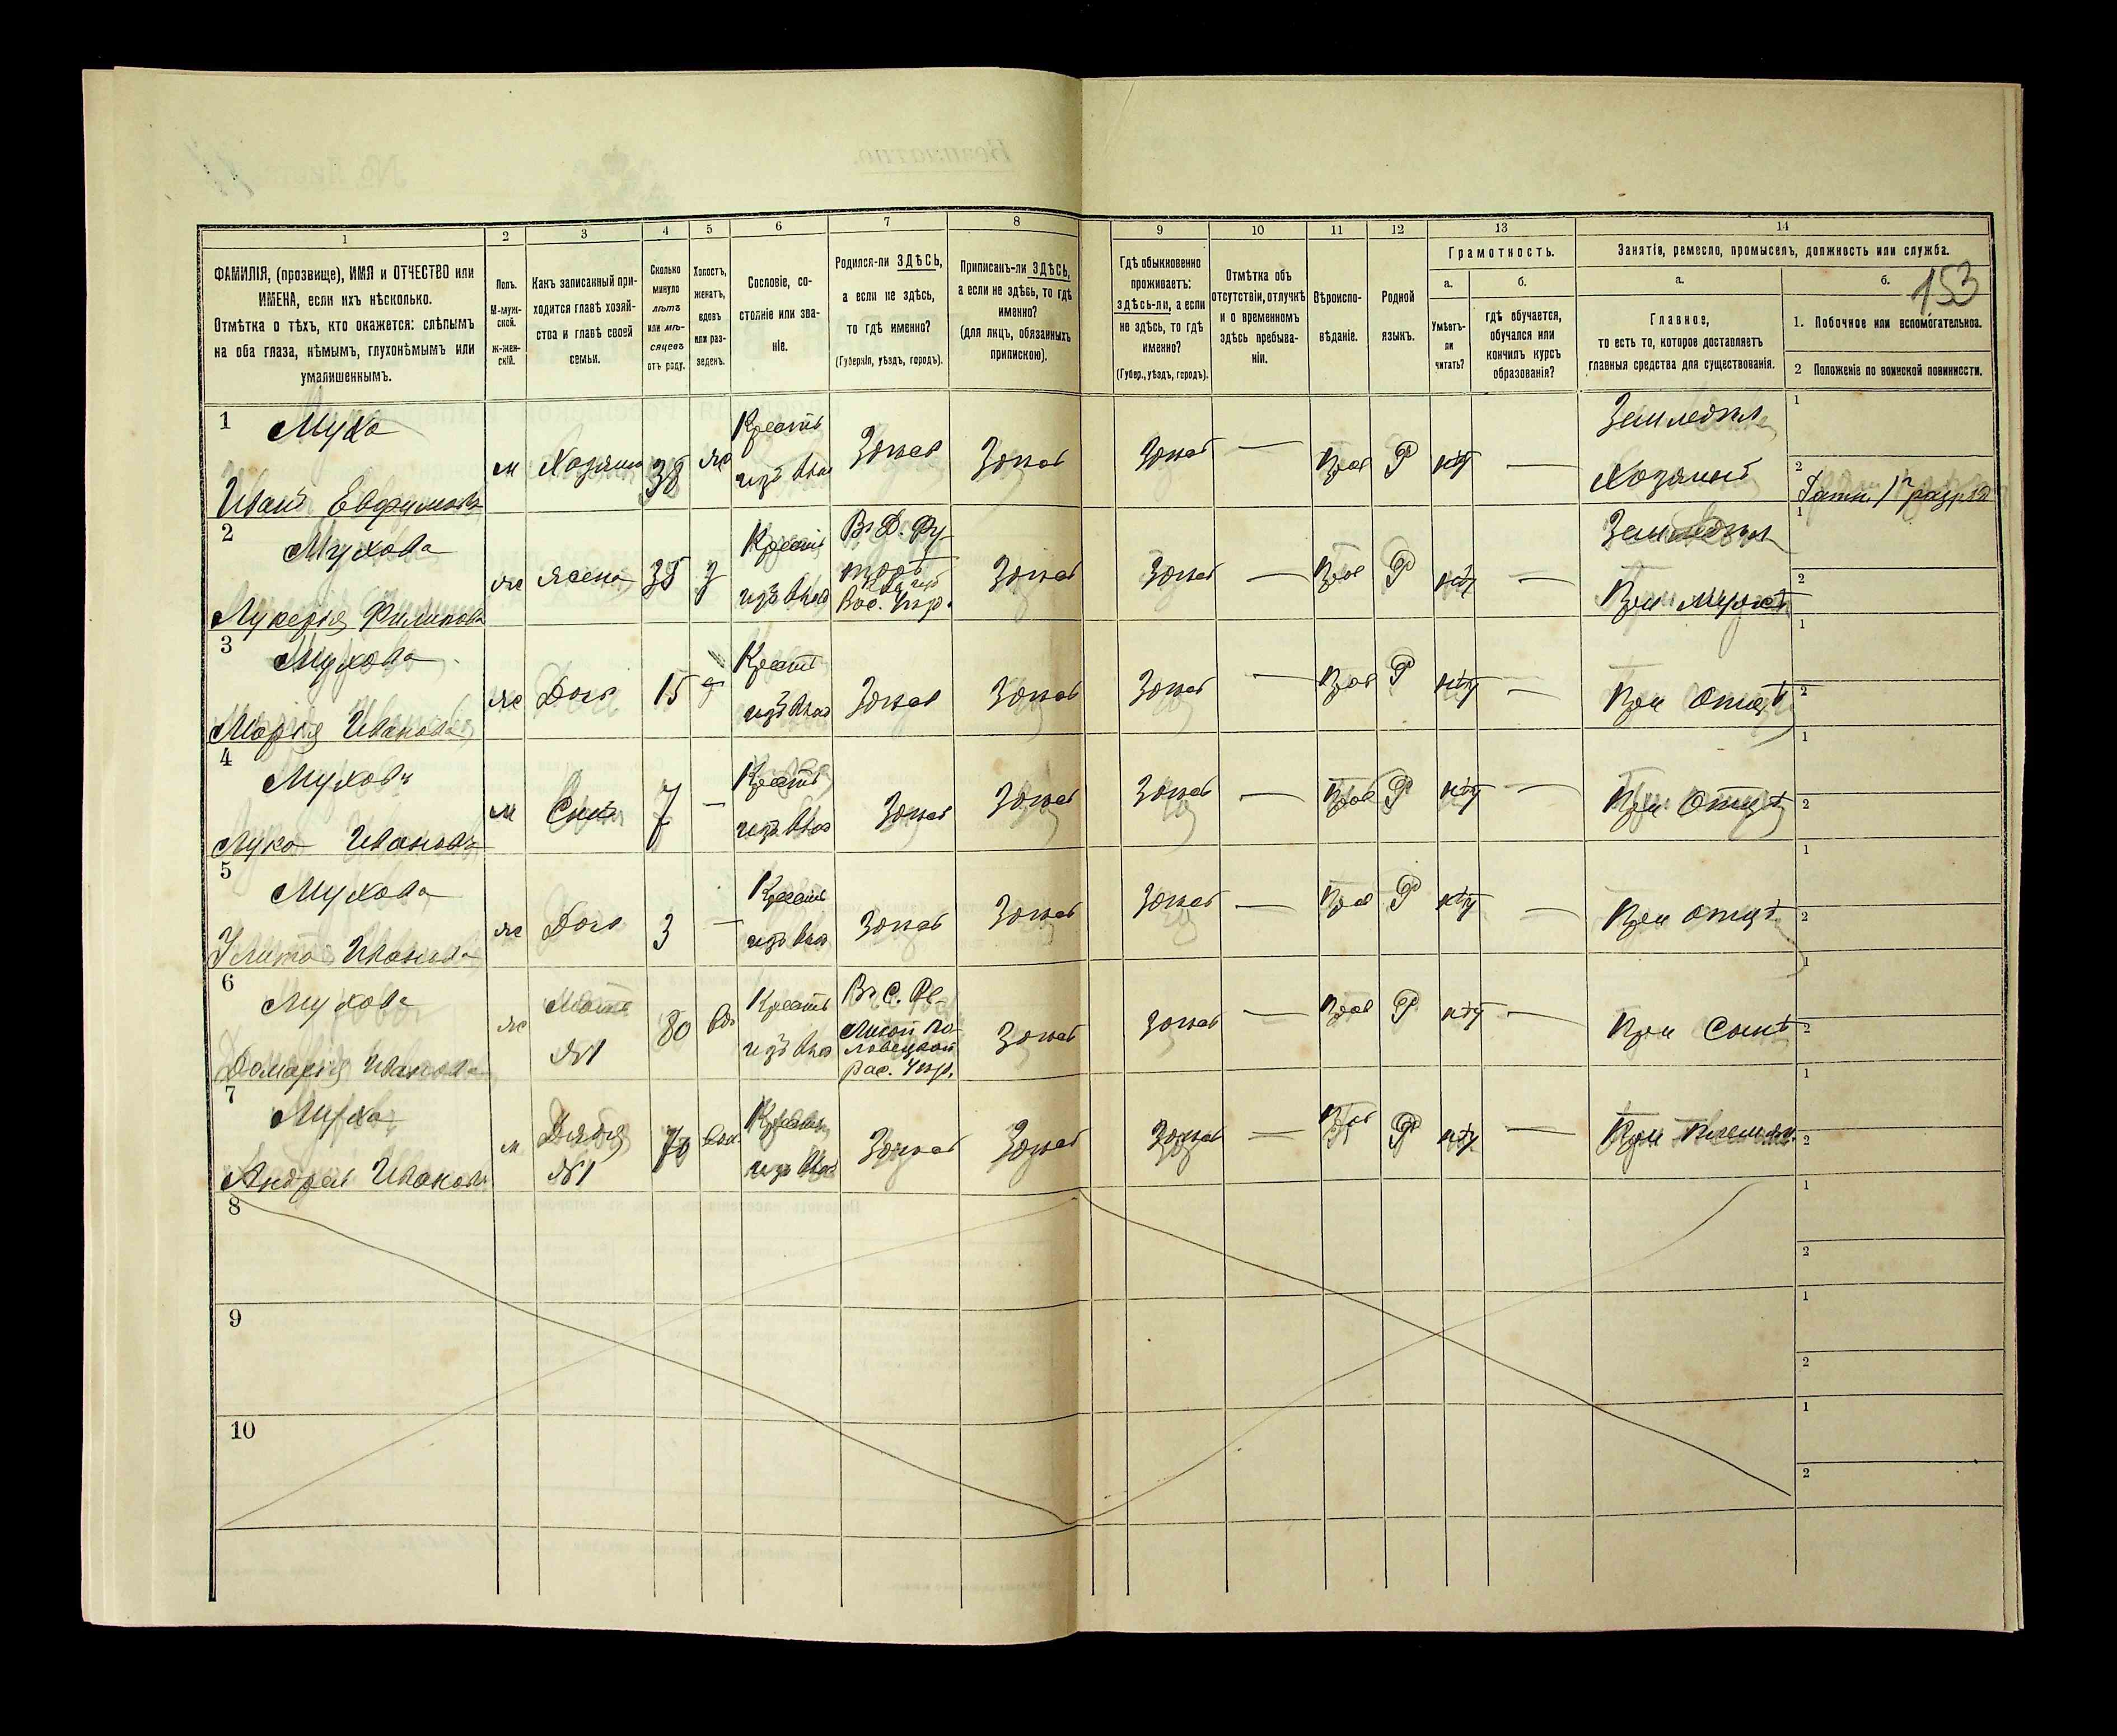 1
2
3
4
5
6
7
8
9
10
11
12
13
14
ФАМИЛІЯ, (прозвище), ИМЯ и ОТЧЕСТВО или
ИМЕНА, если ихъ нѣсколько.
Отмѣтка о тѣхъ, кто окажется: слѣпымъ
на оба глаза, нѣмымъ, глухонѣмымъ или
умалишеннымъ.
Полъ.
М-муж-
ской.
ж-жен-
скій.
Какъ записанный при-
ходится главѣ хозяй-
ства и главѣ своей
семьи.
Сколько
минуло
лѣтъ
или мѣ-
сяцевъ
отъ роду.
Холостъ,
женатъ,
вдовъ
или раз-
веденъ.
Сословіе, со-
стояніе или зва-
ніе.
Родился-ли ЗДѢСЬ,
а если не здѣсь,
то гдѣ именно?
(Губернія, уѣздъ, городъ).
Приписанъ-ли ЗДѢСЬ,
а если не здѣсь, то гдѣ
именно?
(для лицъ, обязанныхъ
припискою).
Гдѣ обыкновенно
проживаетъ:
здѣсь-ли, а если
не здѣсь, то гдѣ
именно?
(Губер., уѣздъ, городъ).
Отмѣтка объ
отсутствіи, отлучкѣ
и о временномъ
здѣсь пребыва-
ніи.
Вѣроиспо-
вѣданіе.
Родной
языкъ.
Грамотность.
а.
Умѣетъ-
ли
читать?
б.
гдѣ обучается,
обучался или
кончилъ курсъ
образованія?
Занятія, ремесло, промыселъ, должность или служба.
а.
Главное,
то есть то, которое доставляетъ
главныя средства для существованія.
б.
153
1. Побочное или вспомогательное.
2 Положеніе по воинской повинности.
1
Муха
Иванъ Евфимовъ
м
Хозяинъ
38
же
Крестъ
изъ влад
Здѣсь
Здѣсь
Здѣсь
—
Прав
Р
нѣтъ
—
Земледѣл
Хозяинъ
1
2
Ратн. 1го разряд
2
Мухова
Лукерія Филипова
же
жена
35
з
Крестъ
изъ влад
Здѣсь
Здѣсь
—
Прав
Р
нѣтъ
—
Земледѣл
При мужѣ
1
2
3
Мухова
Марія Иванова
же
Дочь
15
Крестъ
изъ влад
Здѣсь
Здѣсь
Здѣсь
—
Прав
Р
нѣтъ
—
При отцѣ
1
2
4
Муховъ
Лука Ивановъ
м
Сынъ
7
—
Крестъ
изъ влад
Здѣсь
Здѣсь
Здѣсь
—
Прав
Р
нѣтъ
—
При отцѣ
1
2
5
Мухова
Улита Иванова
же
Дочь
3
—
Крестъ
изъ влад
Здѣсь
Здѣсь
Здѣсь
—
Прав
Р
нѣтъ
—
При отцѣ
1
2
6
Мухова
Домарія Иванова
же
Мать
№1
80
вдо
Крестъ
изъ влад
Здѣсь
Здѣсь
—
Прав
Р
нѣтъ
—
При сынѣ
1
2
7
Муха
Андрей Ивановъ
м
Дядя
№1
70
Крестъ
изъ влад
Здѣсь
Здѣсь
Здѣсь
—
Прав
Р
нѣтъ
—
При племян.
1
2
8
1
2
9
1
2
10
1
2